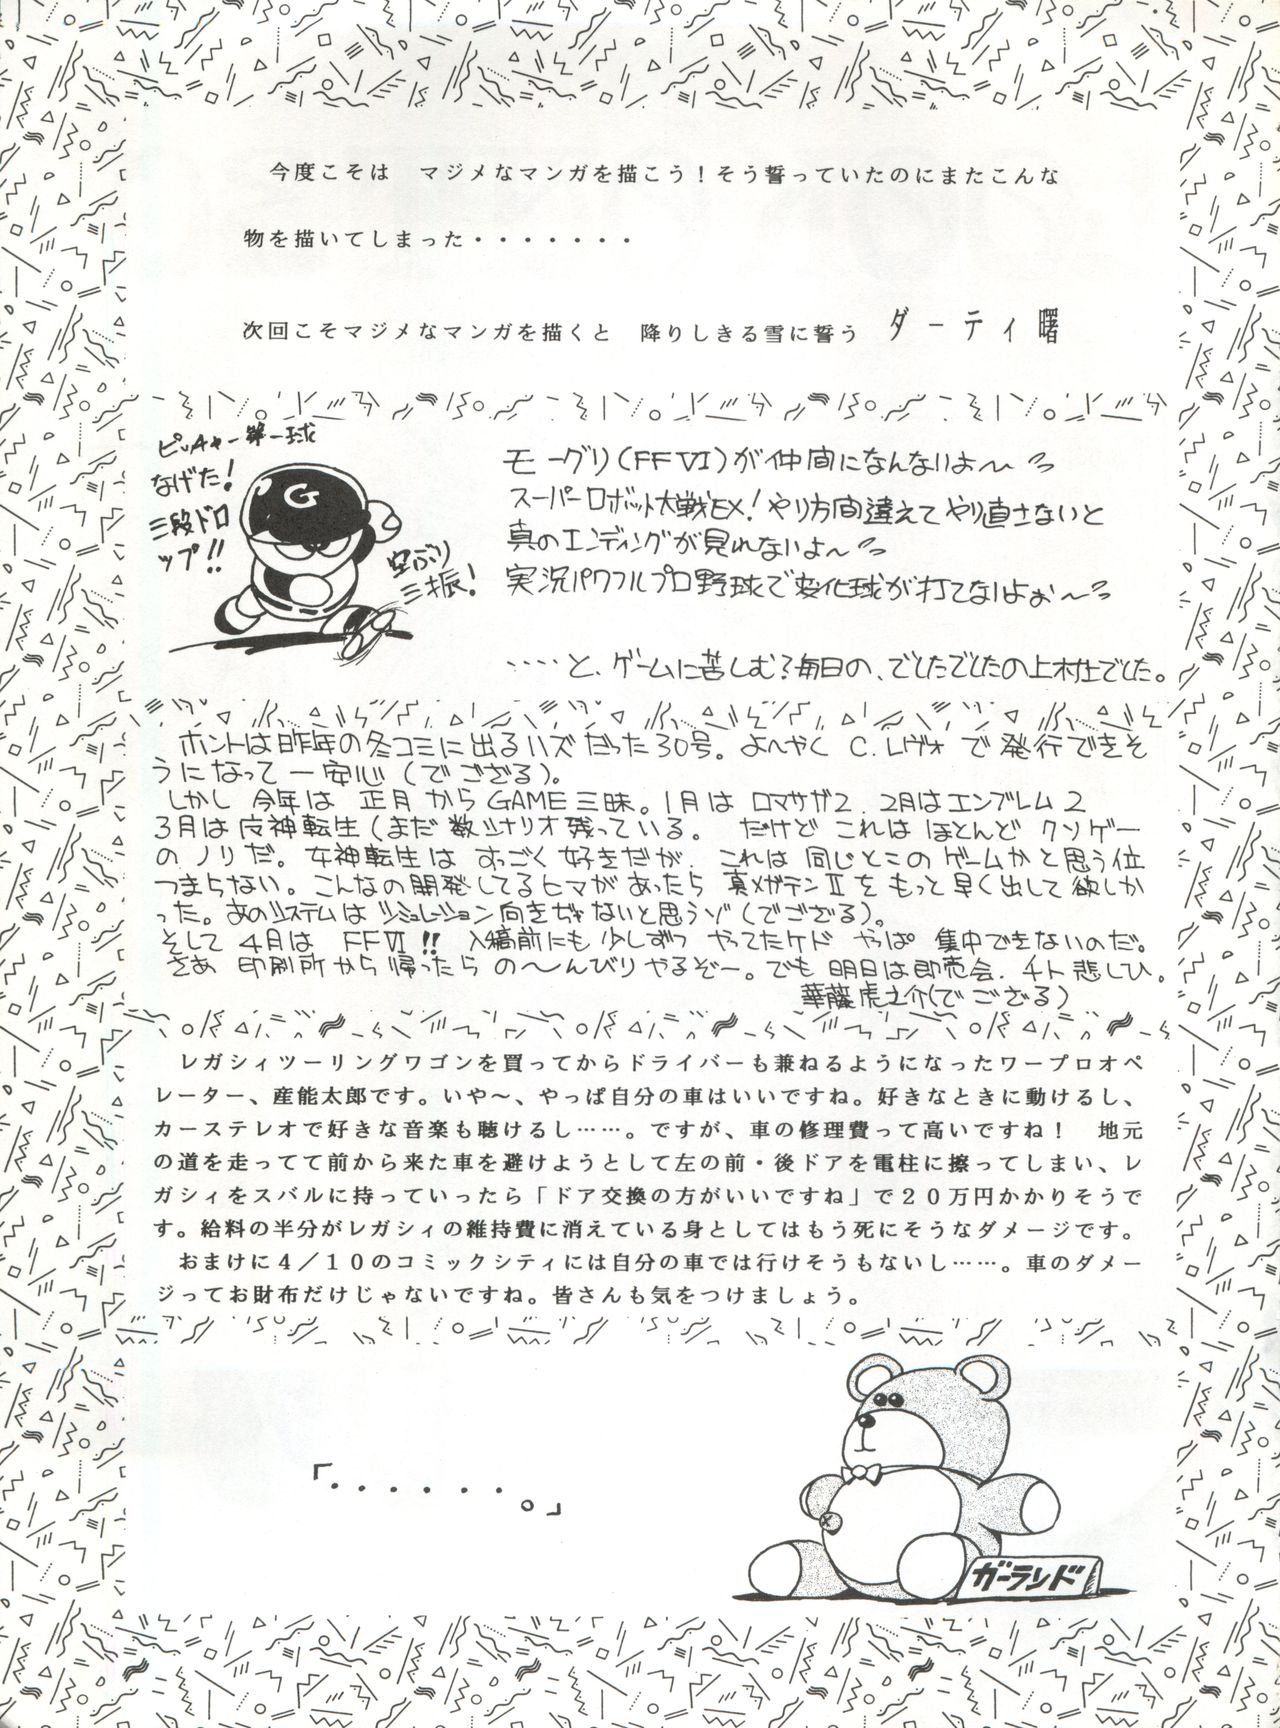 今度こそは　マジメなマンガを描こう！そう誓っていたのにまたこんな
物を描いてしまった・・・・・・・
次回こそマジメなマンガを描くと　降りしきる雪に誓う　ダーティ曙
ピッチャー第一球
なげた！
三段ドロ
ップ！！
空ぶり
三振！
モーグリ（FFⅥ）が仲間になんないよ〜
スーパーロボット大戦EX！やり方間違えてやり直さないと
真のエンディングが見れないよ〜
実況パワフルプロ野球で変化球が打てないよぉ〜
‥‥と、ゲームに苦しむ？毎日の、でしたでしたの上村仕でした。
ホントは昨年の冬コミに出るハズだった30号。よ〜やく C.レヴォ で 発行できそ
うになって 一安心（でござる）。
しかし 今年は 正月 から GAME三昧。1月は ロマサガ2、2月はエンブレム2
3月は女神転生（まだ数シナリオ残っている。 だけど これは ほとんど クソゲー
の ノリだ。女神転生は すっごく 好きだが、これは 同じとこの ゲームかと思う位
つまらない。こんなの開発してるヒマが あったら 真メガテンⅡを もっと 早く出して欲しか
った。あのシステムは シミュレーション向きぢゃないと思うゾ（でござる）。
そして 4月は FFⅥ!! 入稿前にも 少しずつ やってたケド やっぱ 集中できないのだ。
さあ 印刷所から帰ったら の〜んびりやるぞー。でも 明日は即売会、チト 悲しひ。
華藤虎之介（でござる）
レガシィツーリングワゴンを買ってからドライバーも兼ねるようになったワープロオペ
レーター、産能太郎です。いや〜、やっぱ自分の車はいいですね。好きなときに動けるし、
カーステレオで好きな音楽も聴けるし……。ですが、車の修理費って高いですね！　地元
の道を走ってて前から来た車を避けようとして左の前・後ドアを電柱に擦ってしまい、レ
ガシィをスバルに持っていったら「ドア交換の方がいいですね」で２０万円かかりそうで
す。給料の半分がレガシィの維持費に消えている身としてはもう死にそうなダメージです。
おまけに４／１０のコミックシティには自分の車では行けそうもないし……。車のダメー
ジってお財布だけじゃないですね。皆さんも気をつけましょう。
「・・・・・・・。」
ガーランド